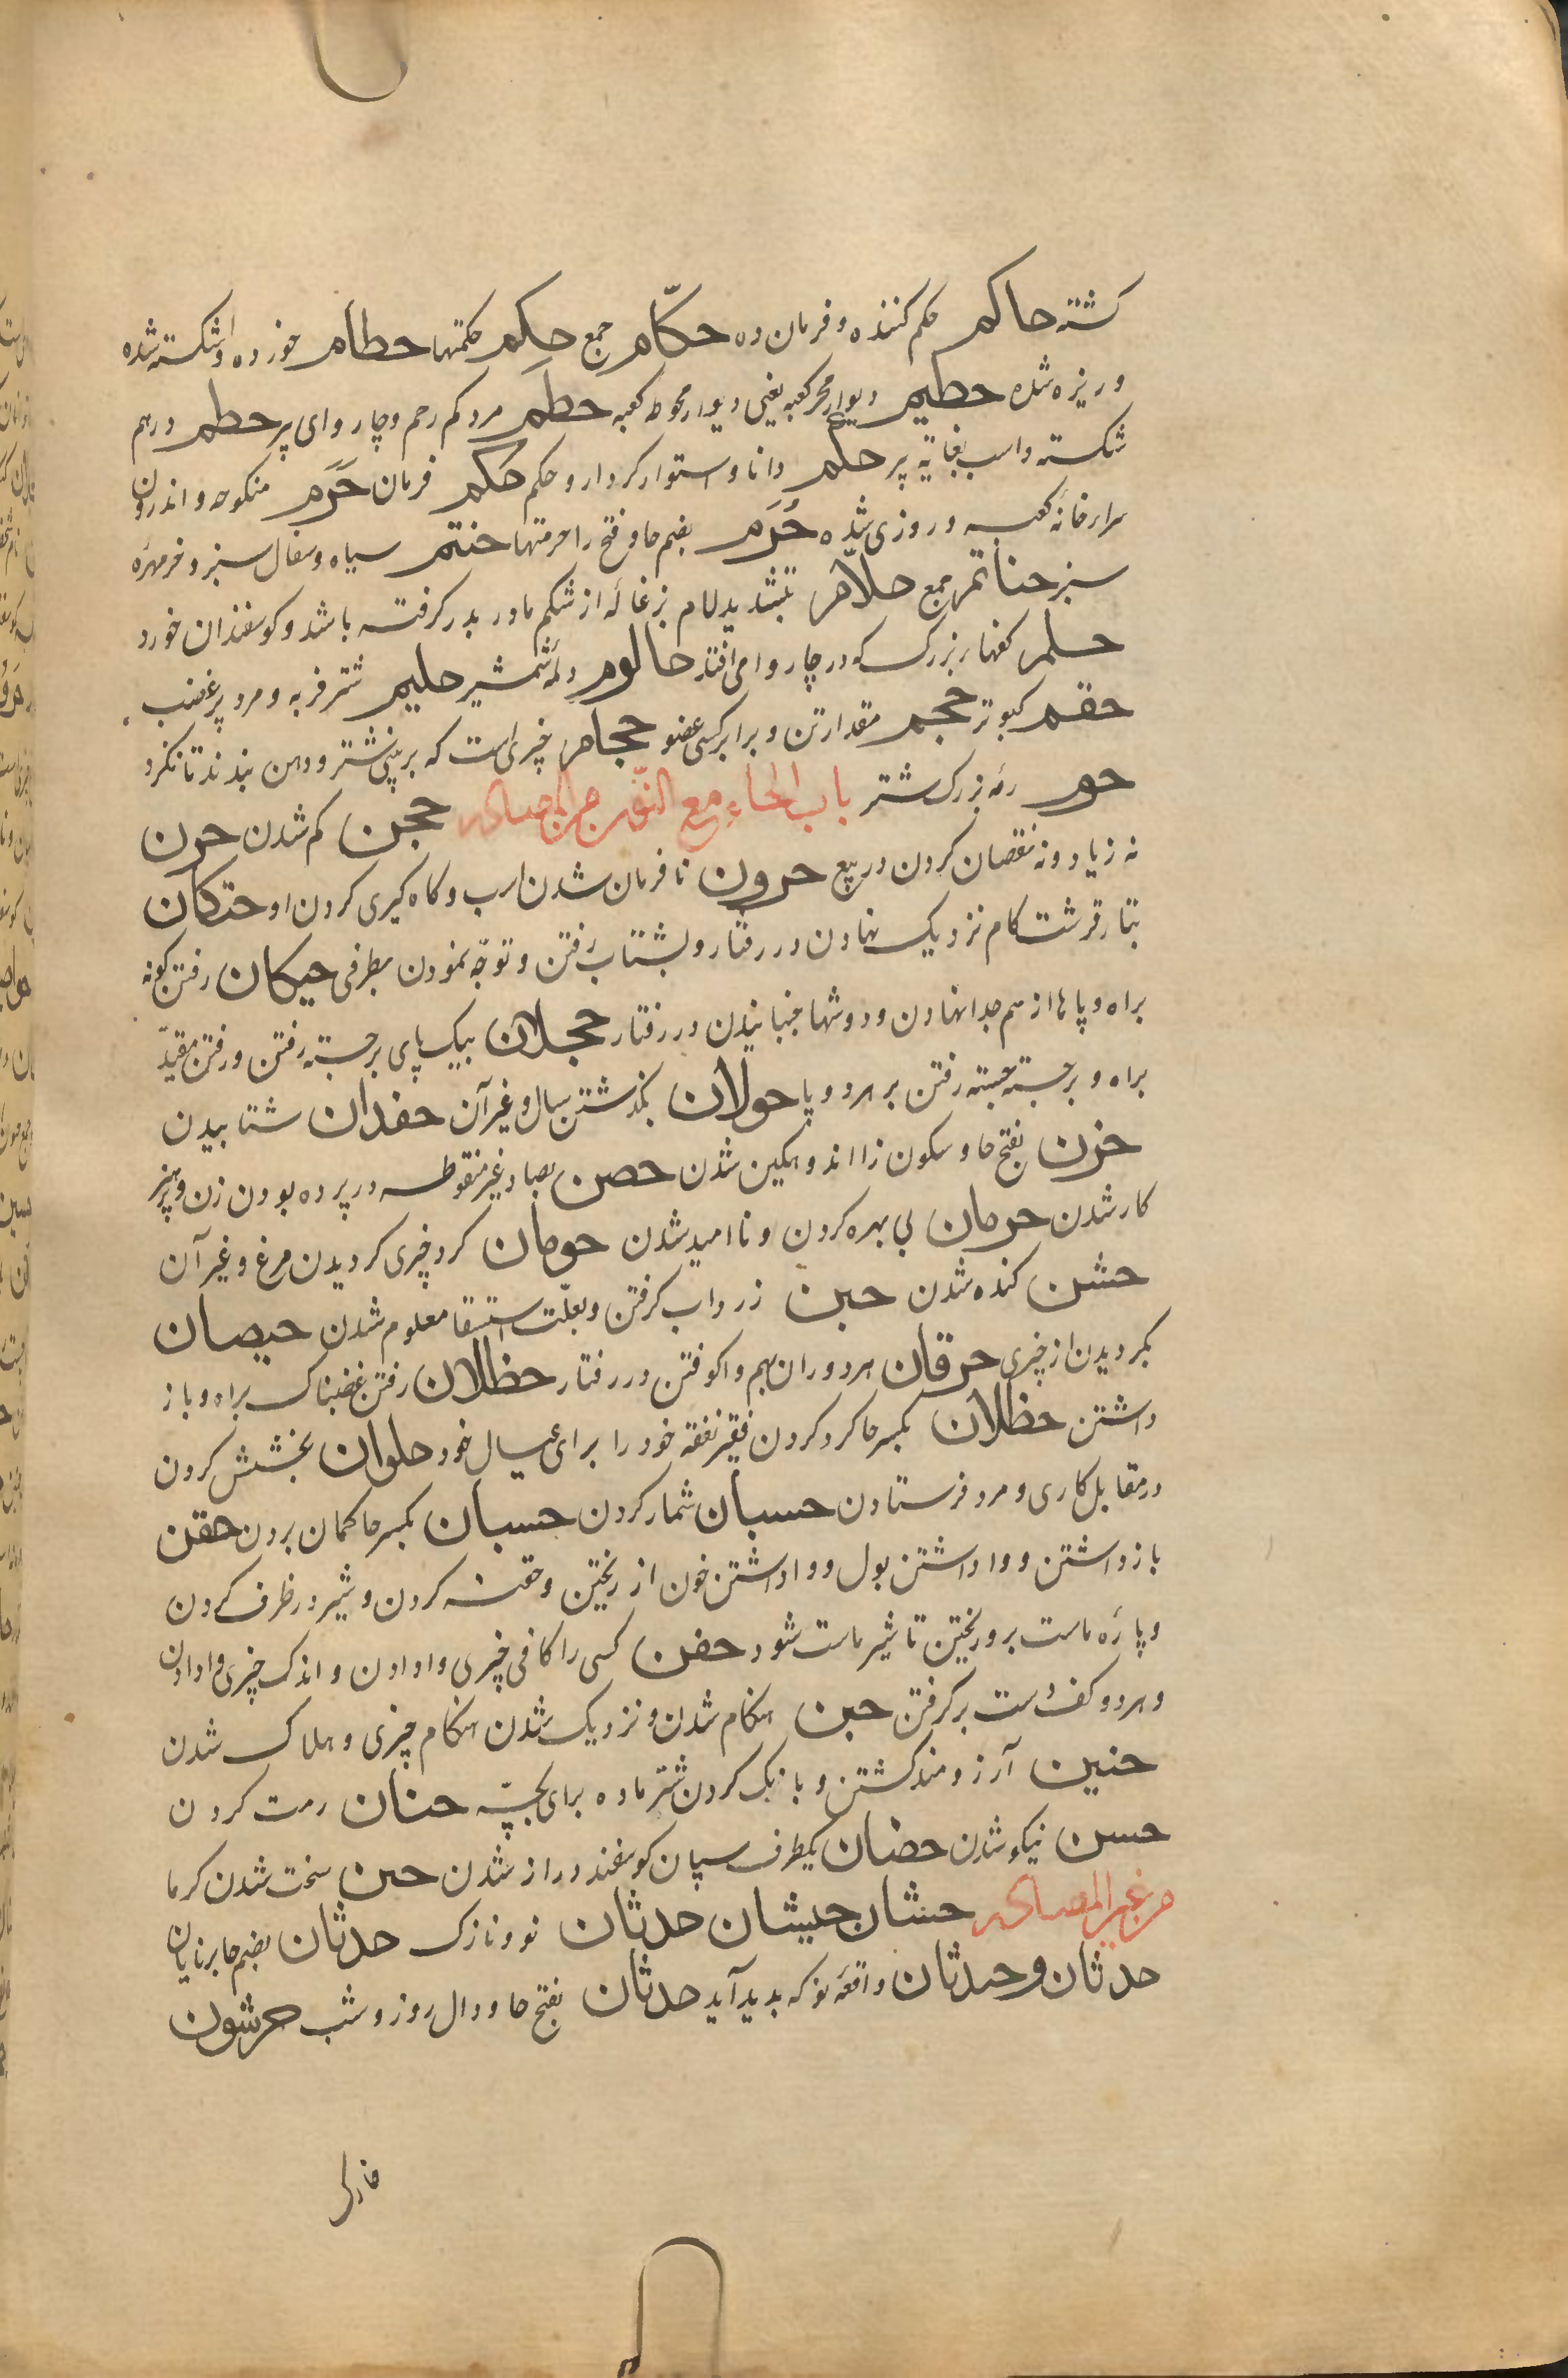 کشته حاکم حکم کننده و فرمان ده حکّام جمع حِکم حکمتها حطام خورده و شکسته شده
و ریزه شده حطیم دیوار حجر کعبه یعنی دیوار محوطه کعبه حطم مرد کم رحم و چاروای پر حطم درهم
شکسته و اسب بغایة پیر حکم دانا و استوار کردار و حکم حکم فرمان حَرَم منکوحه و اندرون
سرا و خانه کعبه و روزی شده حُرَم بضم حا و فتح را حرمتها حنتم سیاه و سفال سبز و خرمهره
سبز حناتم جمع حلّام بتشدید لام بزغاله از شکم مادر بدر کرفته باشد و کوسفندان خورد
حلم کنهار بزرک که در چاروا می افتد حالوم حلیم شتر فربه و مرد پر غضب
حقم کبوتر حجم مقدار تن و برابر کسی عضو حجام چیزی است که بر بینی شتر و دهن بندند تا نکزد
حوم رمه بزرک شتر باب الحاء مع النون من المصادر حجن کم شدن حرن
نه زیاد و نه نقصان کردن در بیع حرون نافرمان شدن اسب و کاه کیری کردن او حتکان
بتاء قرشت کام نزدیک نهادن در رفتار و بشتاب رفتن و توجّه نمودن بطرفی حیکان رفتن کونه
براه و پاها از هم جدا نهادن و دوشها جنبانیدن در رفتار حجلان بیک پای برجسته رفتن و رفتن مقیّد
براه و برجسته جسته رفتن بر هر دو پا حولان بکذشتن سال و غیر آن حفدان شتابیدن
حزن بفتح حا و سکون زا اندوهکین شدن حصن بصاد غیر منقوطه در پرده بودن زن و پرهیز
کار شدن حرمان بی بهره کردن و نا امید شدن حومان کرد چیزی کردیدن مرغ و غیر آن
حشن کنده شدن حبن زرداب کرفتن و بعلّت استسقا معلوم شدن حیصان
بکردیدن از چیزی حرقان هر دو ران بهم واکوفتن در رفتار حظلان رفتن غضبناک براه و باز
داشتن حظلان بکسر حا کرد کردن فقیر نفقه خود را برای عیال خود حلوان بخشش کردن
در مقابل کاری و مرد فرستادن حسبان شمار کردن حسبان بکسر حا کمان بردن حقن
باز داشتن و وا داشتن بول و وا داشتن خون از ریختن و حقنه کردن و شیر در ظرف کردن
و پاره ماست برو ریختن تا شیر ماست شود حفن کسی را کافی چیزی وا دادن و اندک چیزی وا دادن
و هر دو کف دست بر کرفتن حین هنکام شدن و نزدیک شدن هنکام چیزی و هلاک شدن
حنین آرزومند کشتن و بانک کردن شتر ماده برای بچّه حنان رحمت کردن
حسن نیکو شدن حضان یکطرف پستان کوسفند دراز شدن حمن سخت شدن کرما
من غیر المصادر حشان حیشان حدثان نو و نازک حدثان بضم حا برنایان
حدثان و حیدثان واقعه نو که بدید آید حدثان بفتح حا و دال روز و شب حرشون